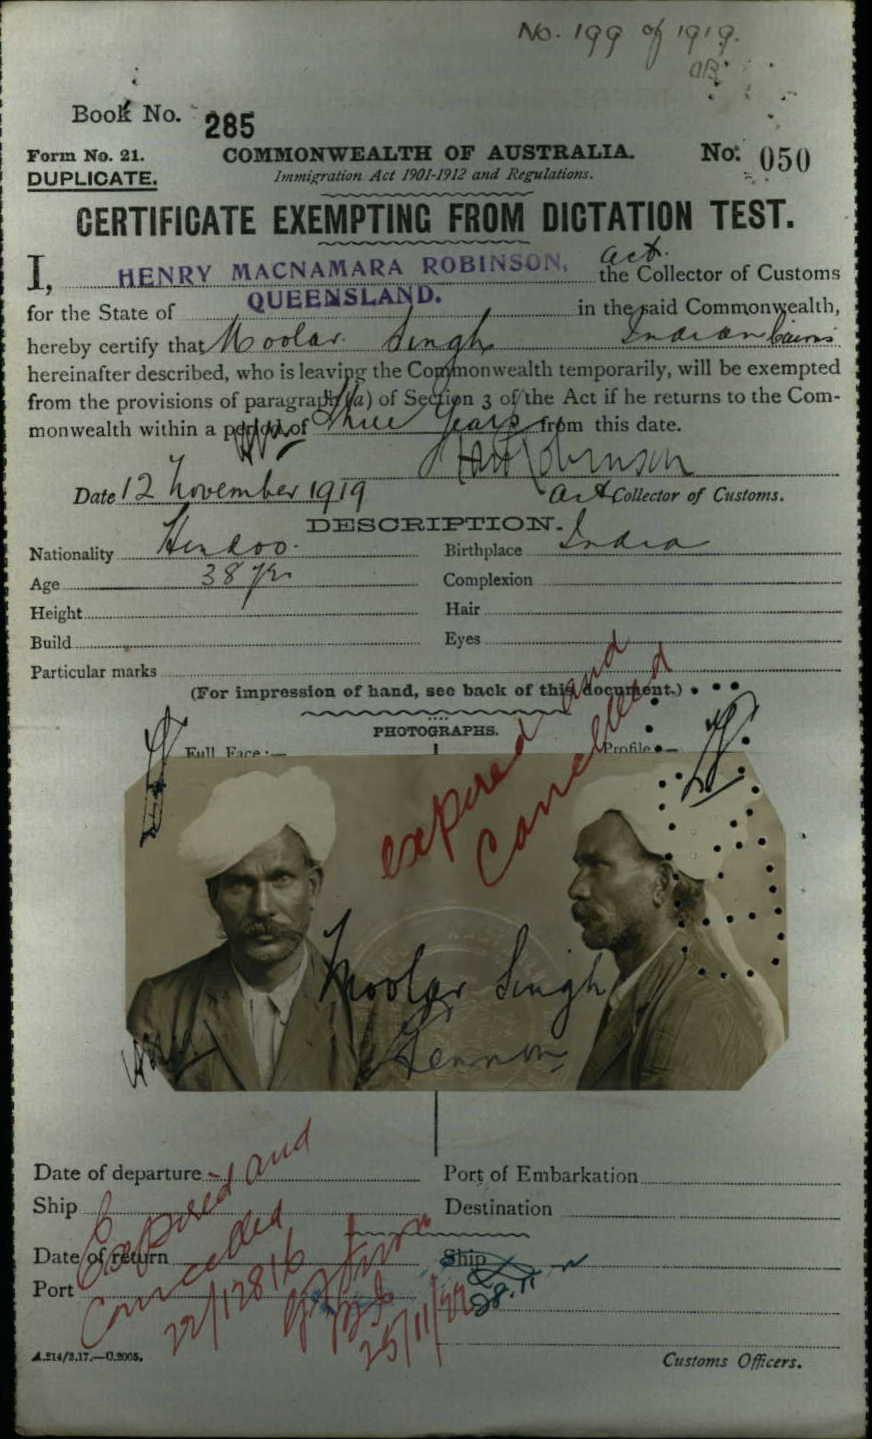 No. 199 of 1919.
Book No. 285
Form No. 21. COMMONWEALTH OF AUSTRALIA. No. 050
DUPLICATE. Immigration Act 1901-1912 and Regulations.
CERTIFICATE EXEMPTING FROM DICTATION TEST.
I, HENRY MACNAMARA ROBINSON, act. the Collector of Customs
for the State of QUEENSLAND. in the said Commonwealth,
hereby certify that Moolar Singh Indian Cairns
hereinafter described, who is leaving the Commonwealth temporarily, will be exempted
from the provisions of paragraph (a) of Section 3 of the Act if he returns to the Com-
monwealth within a period of Three Years from this date.
HMRobinson
Date 12 November 1919 Act Collector of Customs.
DESCRIPTION.
Nationality Hindoo. Birthplace India
Age 38 yrs Complexion
Height Hair
Build Eyes
Particular marks
(For impression of hand, see back of this document.)
PHOTOGRAPHS.
Full Face:— Profile:—
expired and
Cancelled
Moolar Singh
Date of departure Port of Embarkation
Ship Destination
Expired and
Cancelled
Date of return Ship
Port
22/12816
25/11/22
28.11
A.214/3.17.—C.2005. Customs Officers.